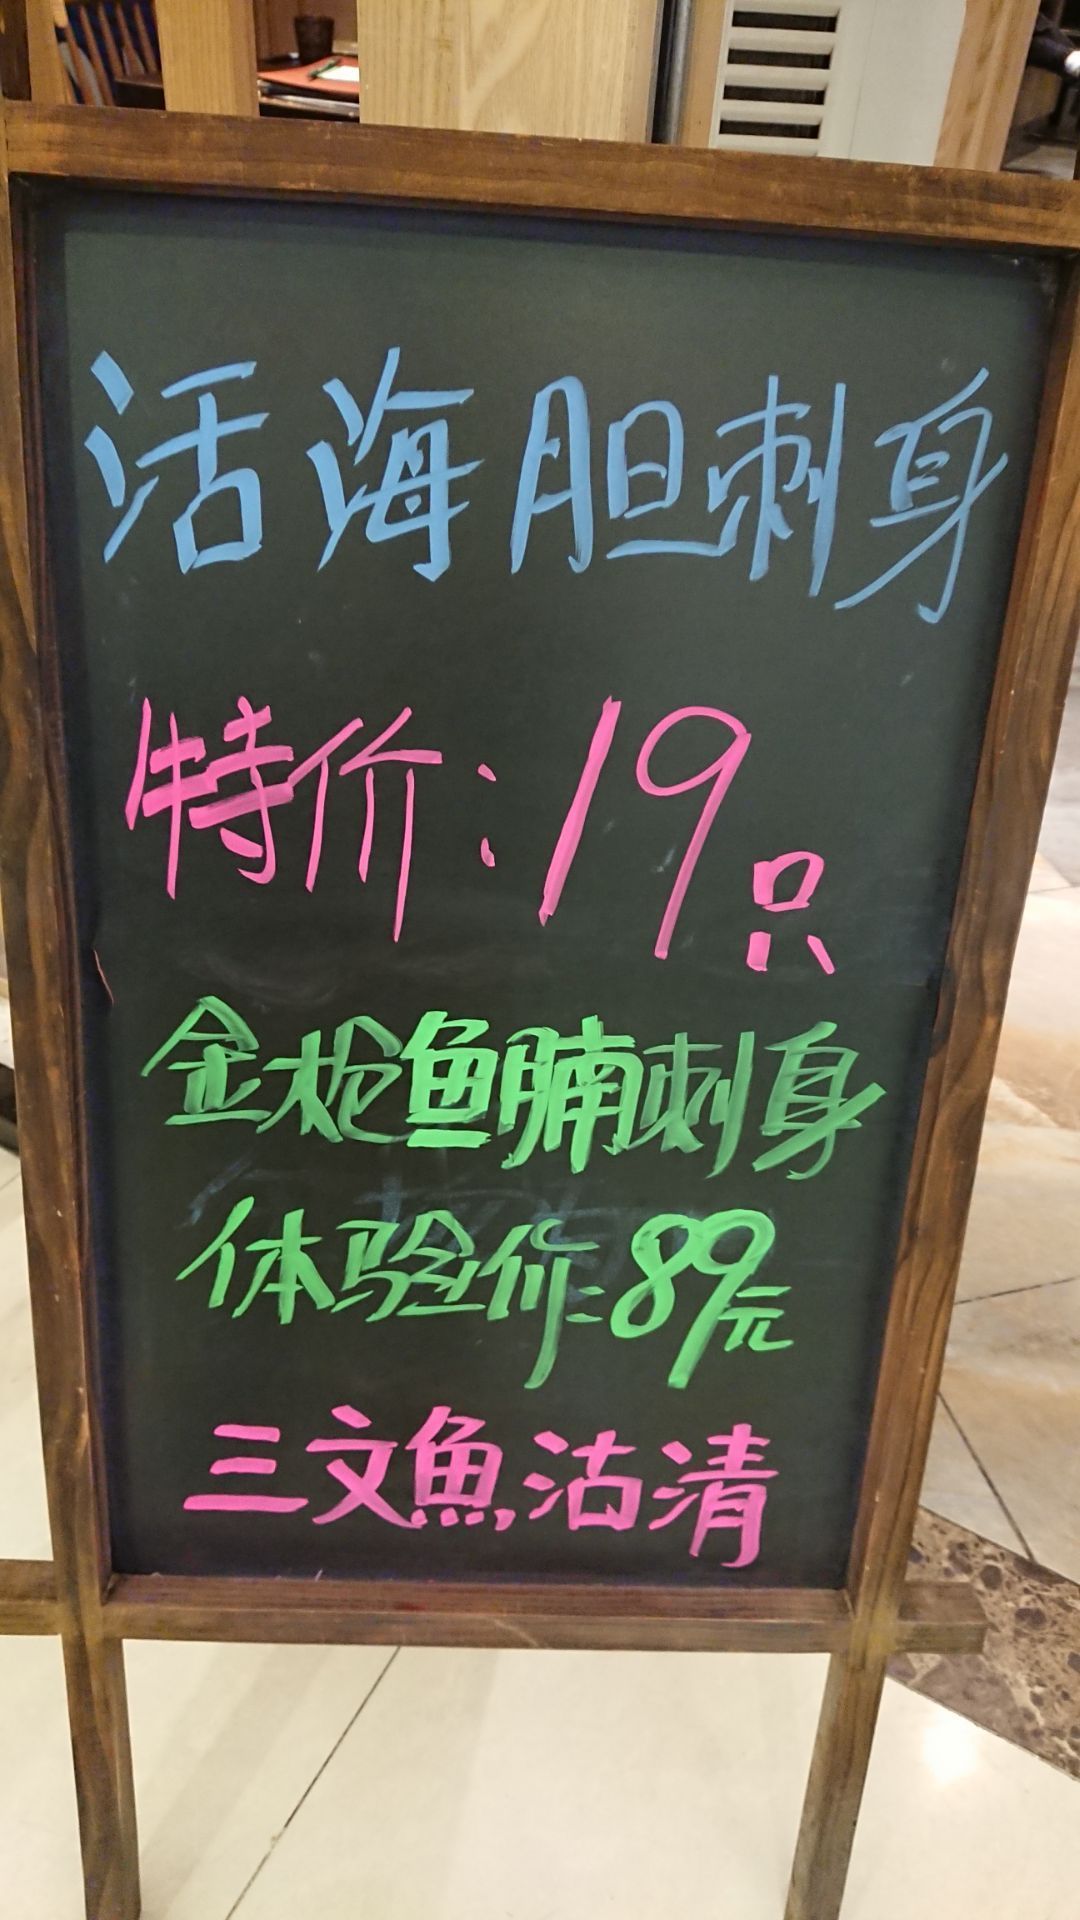 活海胆刺身
特价:19只
金枪鱼腩刺身
体验价:89元
三文魚沽清